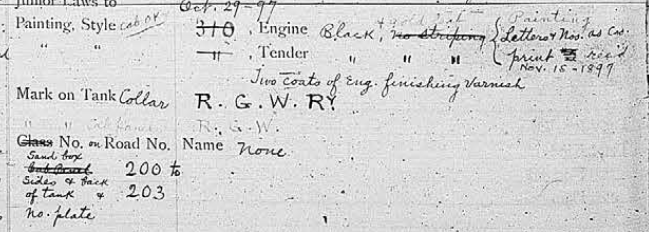 Junior Laws to Oct. 29-97
Painting, Style cab 04 310, Engine Black, gold leaf no striping Painting Letters & Nos. as Co's.
" " —"—, Tender " " " print rec'd Nov. 15-1897
Two coats of Eng. finishing Varnish
Mark on Tank Collar R. G. W. RY.
" " Cab panel R. G. W.
Class No. on Road No. Name None
Sand box
Cab Panel 200 to
Sides & back
of tank & 203
No. plate